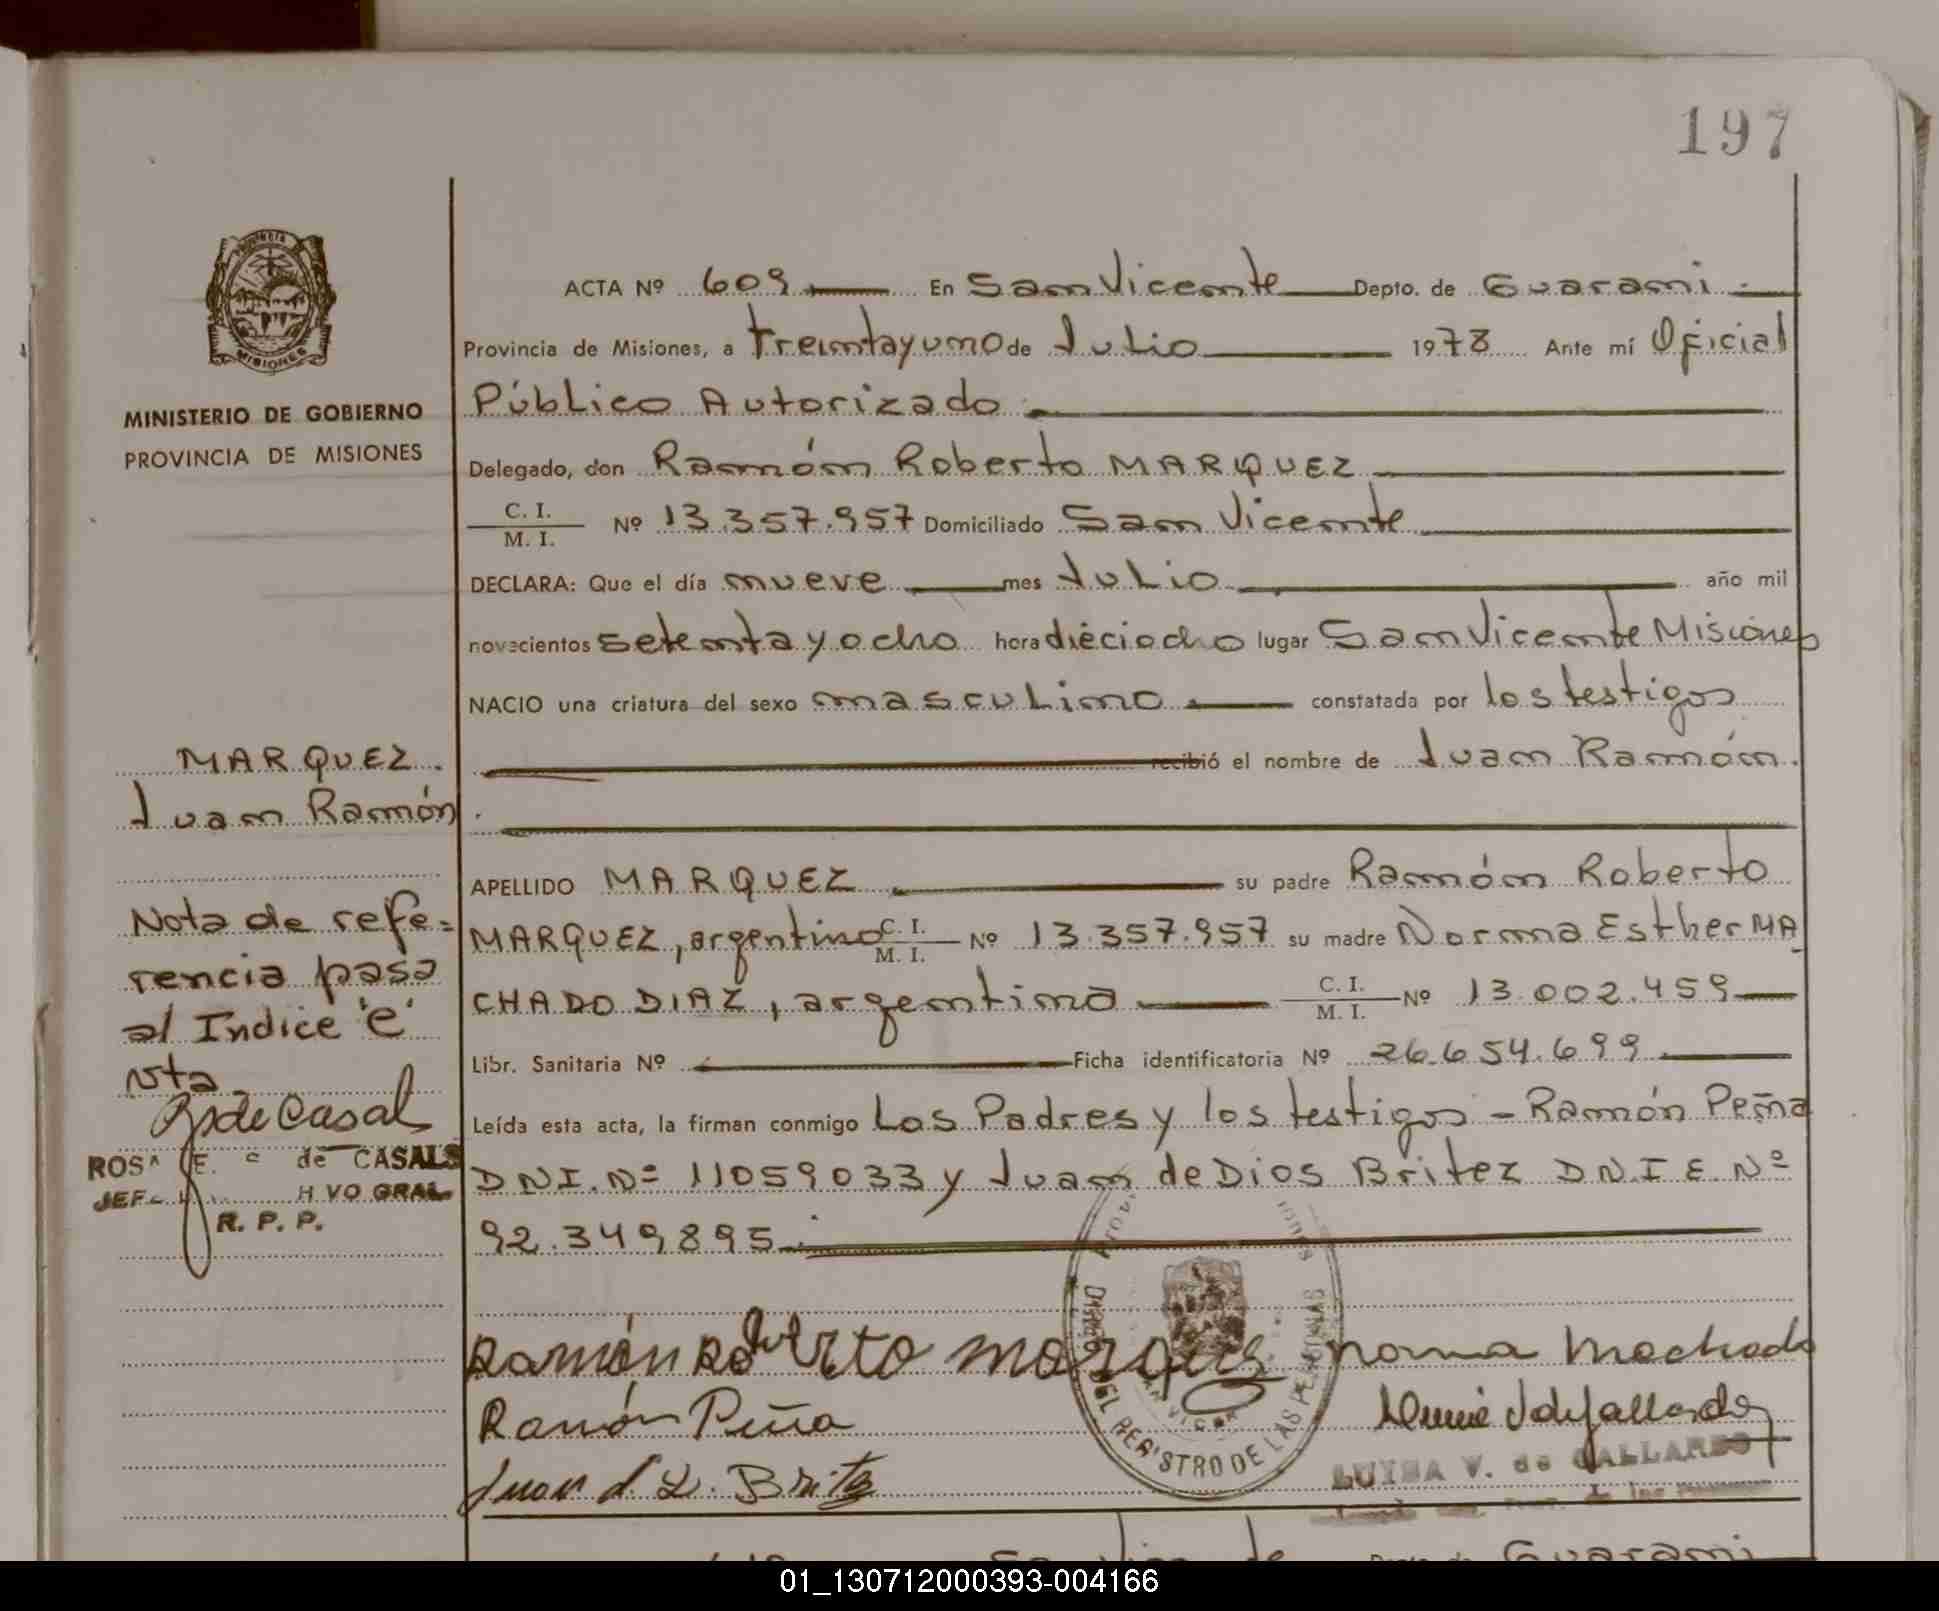 197
PROVINCIA DE
MISIONES
MINISTERIO DE GOBIERNO
PROVINCIA DE MISIONES
ACTA Nº 609 En San Vicente Depto. de Guarani.
Provincia de Misiones, a treintayuno de Julio 1978 Ante mí Oficial
Público Autorizado
Delegado, don Ramón Roberto MARQUEZ
C. I.
M. I. Nº 13.357.957 Domiciliado San Vicente
DECLARA: Que el día nueve mes Julio año mil
novecientos setenta y ocho hora dieciocho lugar San Vicente Misiones
NACIO una criatura del sexo masculino constatada por los testigos
recibió el nombre de Juan Ramón.
APELLIDO MARQUEZ su padre Ramón Roberto
MARQUEZ, argentino C. I.
M. I. Nº 13.357.957 su madre Norma Esther MA
CHADO DIAZ, argentina C. I.
M. I. Nº 13.002.459
Libr. Sanitaria Nº Ficha identificatoria Nº 26.654.699
Leída esta acta, la firman conmigo Los Padres y los testigos - Ramón Peña
DNI. Nº 11059033 y Juan de Dios Britez D.N.I E. Nº
92.349895.
MARQUEZ.
Juan Ramón.
Nota de refe=
rencia pasa
al Indice "e"
Nta
R de Casal
ROSA E. C de CASALS
H VO GRAL.
R. P. P.
Ramón Roberto Marques Norma Machado
Ramón Peña
Juan d. D. Britez
DEL REGISTRO DE LAS PERSONAS
LUISA V. de GALLARDO
San Vicente Depto. de Guarani
01_130712000393-004166